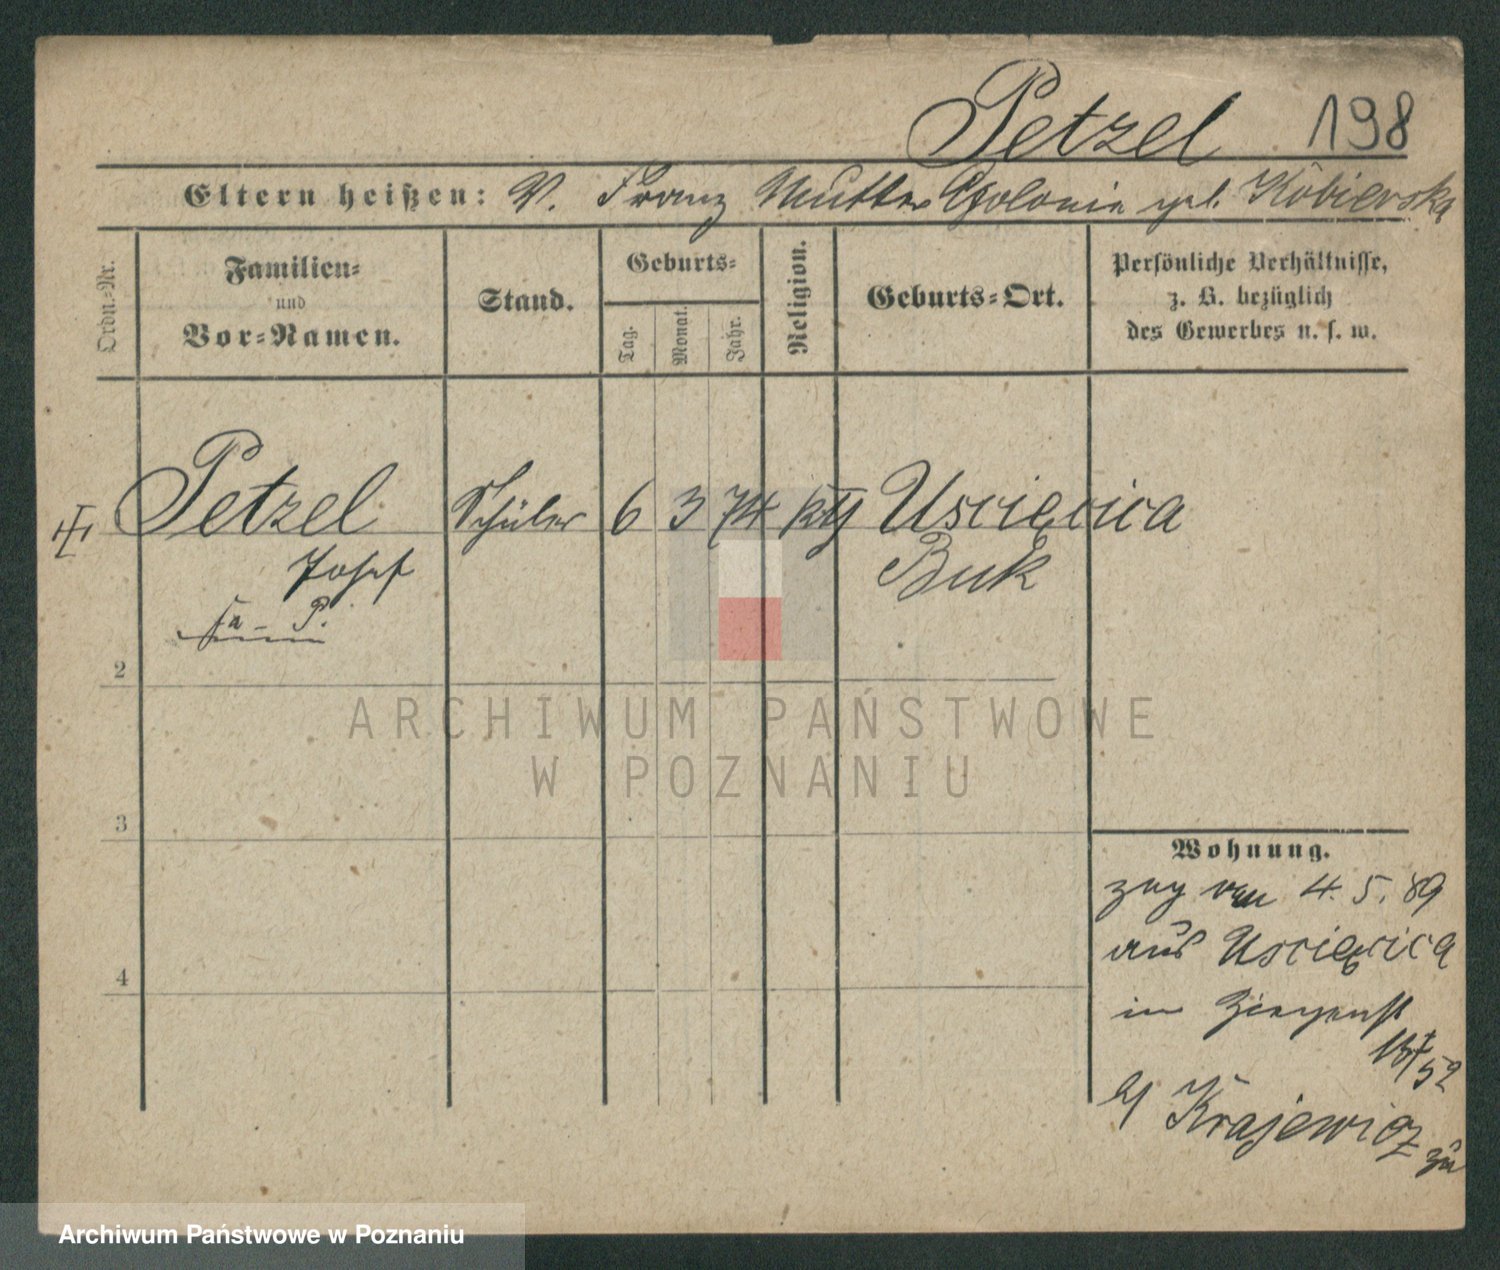 Petzel 198
Eltern heißen: V. Franz Mutter Apolonia geb. Kubierska
Ordn.-Nr.
Familien-
und
Vor-Namen.
Stand.
Geburts-
Tag.
Monat.
Jahr.
Religion.
Geburts-Ort.
Persönliche Verhältnisse,
z. B. bezüglich
des Gewerbes u. s. w.
Petzel Schüler 6 3 74 kth Uscięcica
Josef Buk
2
ARCHIWUM PAŃSTWOWE
W POZNANIU
3
Wohnung.
zog am 4. 5. 89
aus Uscięcica
4
in Ziegenst
b/ Krajewicz
Archiwum Państwowe w Poznaniu